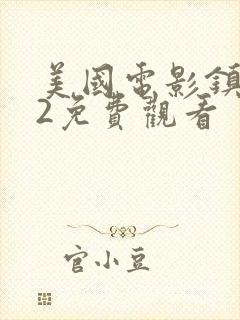 美國電影鎮
2免費觀看
官小豆